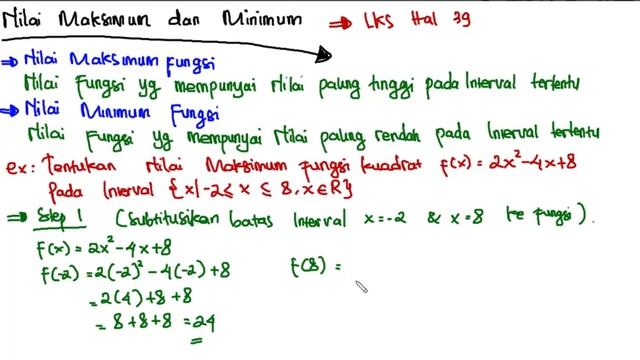 Nilai Maksimum dan Minimum ⇒ LKS Hal 39
⇒ Nilai Maksimum Fungsi
Nilai Fungsi yg mempunyai Nilai paling tinggi pada Interval tertentu
⇒ Nilai Minimum Fungsi
Nilai Fungsi yg mempunyai Nilai paling rendah pada Interval tertentu
ex: Tentukan Nilai Maksimum fungsi kuadrat f(x) = 2x²-4x+8
pada Interval {x|-2≤ x ≤ 8, x∈R}
⇒ Step 1 (subtitusikan batas Interval x=-2 & x=8 ke fungsi).
f(x) = 2x²-4x+8
f(-2) = 2(-2)²-4(-2)+8 f(8) =
= 2(4)+8+8
= 8+8+8 = 24